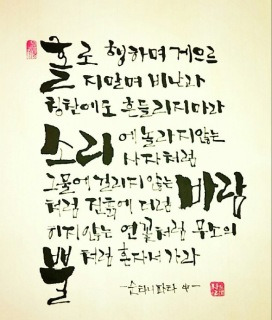 홀로 행하며 게으르
지 말며 비난과
칭찬에도 흔들리지 마라
소리에 놀라지 않는
사자처럼
그물에 걸리지 않는 바람
처럼 진흙에 더럽
히지 않는 연꽃처럼 무소의
뿔처럼 혼자서 가라
- 숫타니파타 中 -